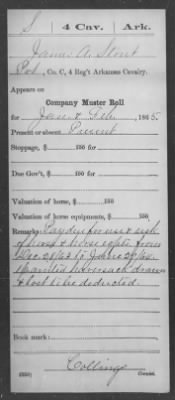 S | 4 Cav. | Ark.
James A. Stout
Pvt, Co. C, 4 Reg't Arkansas Cavalry.
Appears on
Company Muster Roll
for Jan & Feb, 1865.
Present or absent Present
Stoppage, $ 100 for
Due Gov't, $ 100 for
Valuation of horse, $ 100
Valuation of horse equipments, $ 100
Remarks: Pay due for use & risk
of horse & horse eqpts from
Dec 28/63 to June 30/64.
1 haversack drawn
& lost to be deducted.
Book mark:
Collings
(358) Copyist.